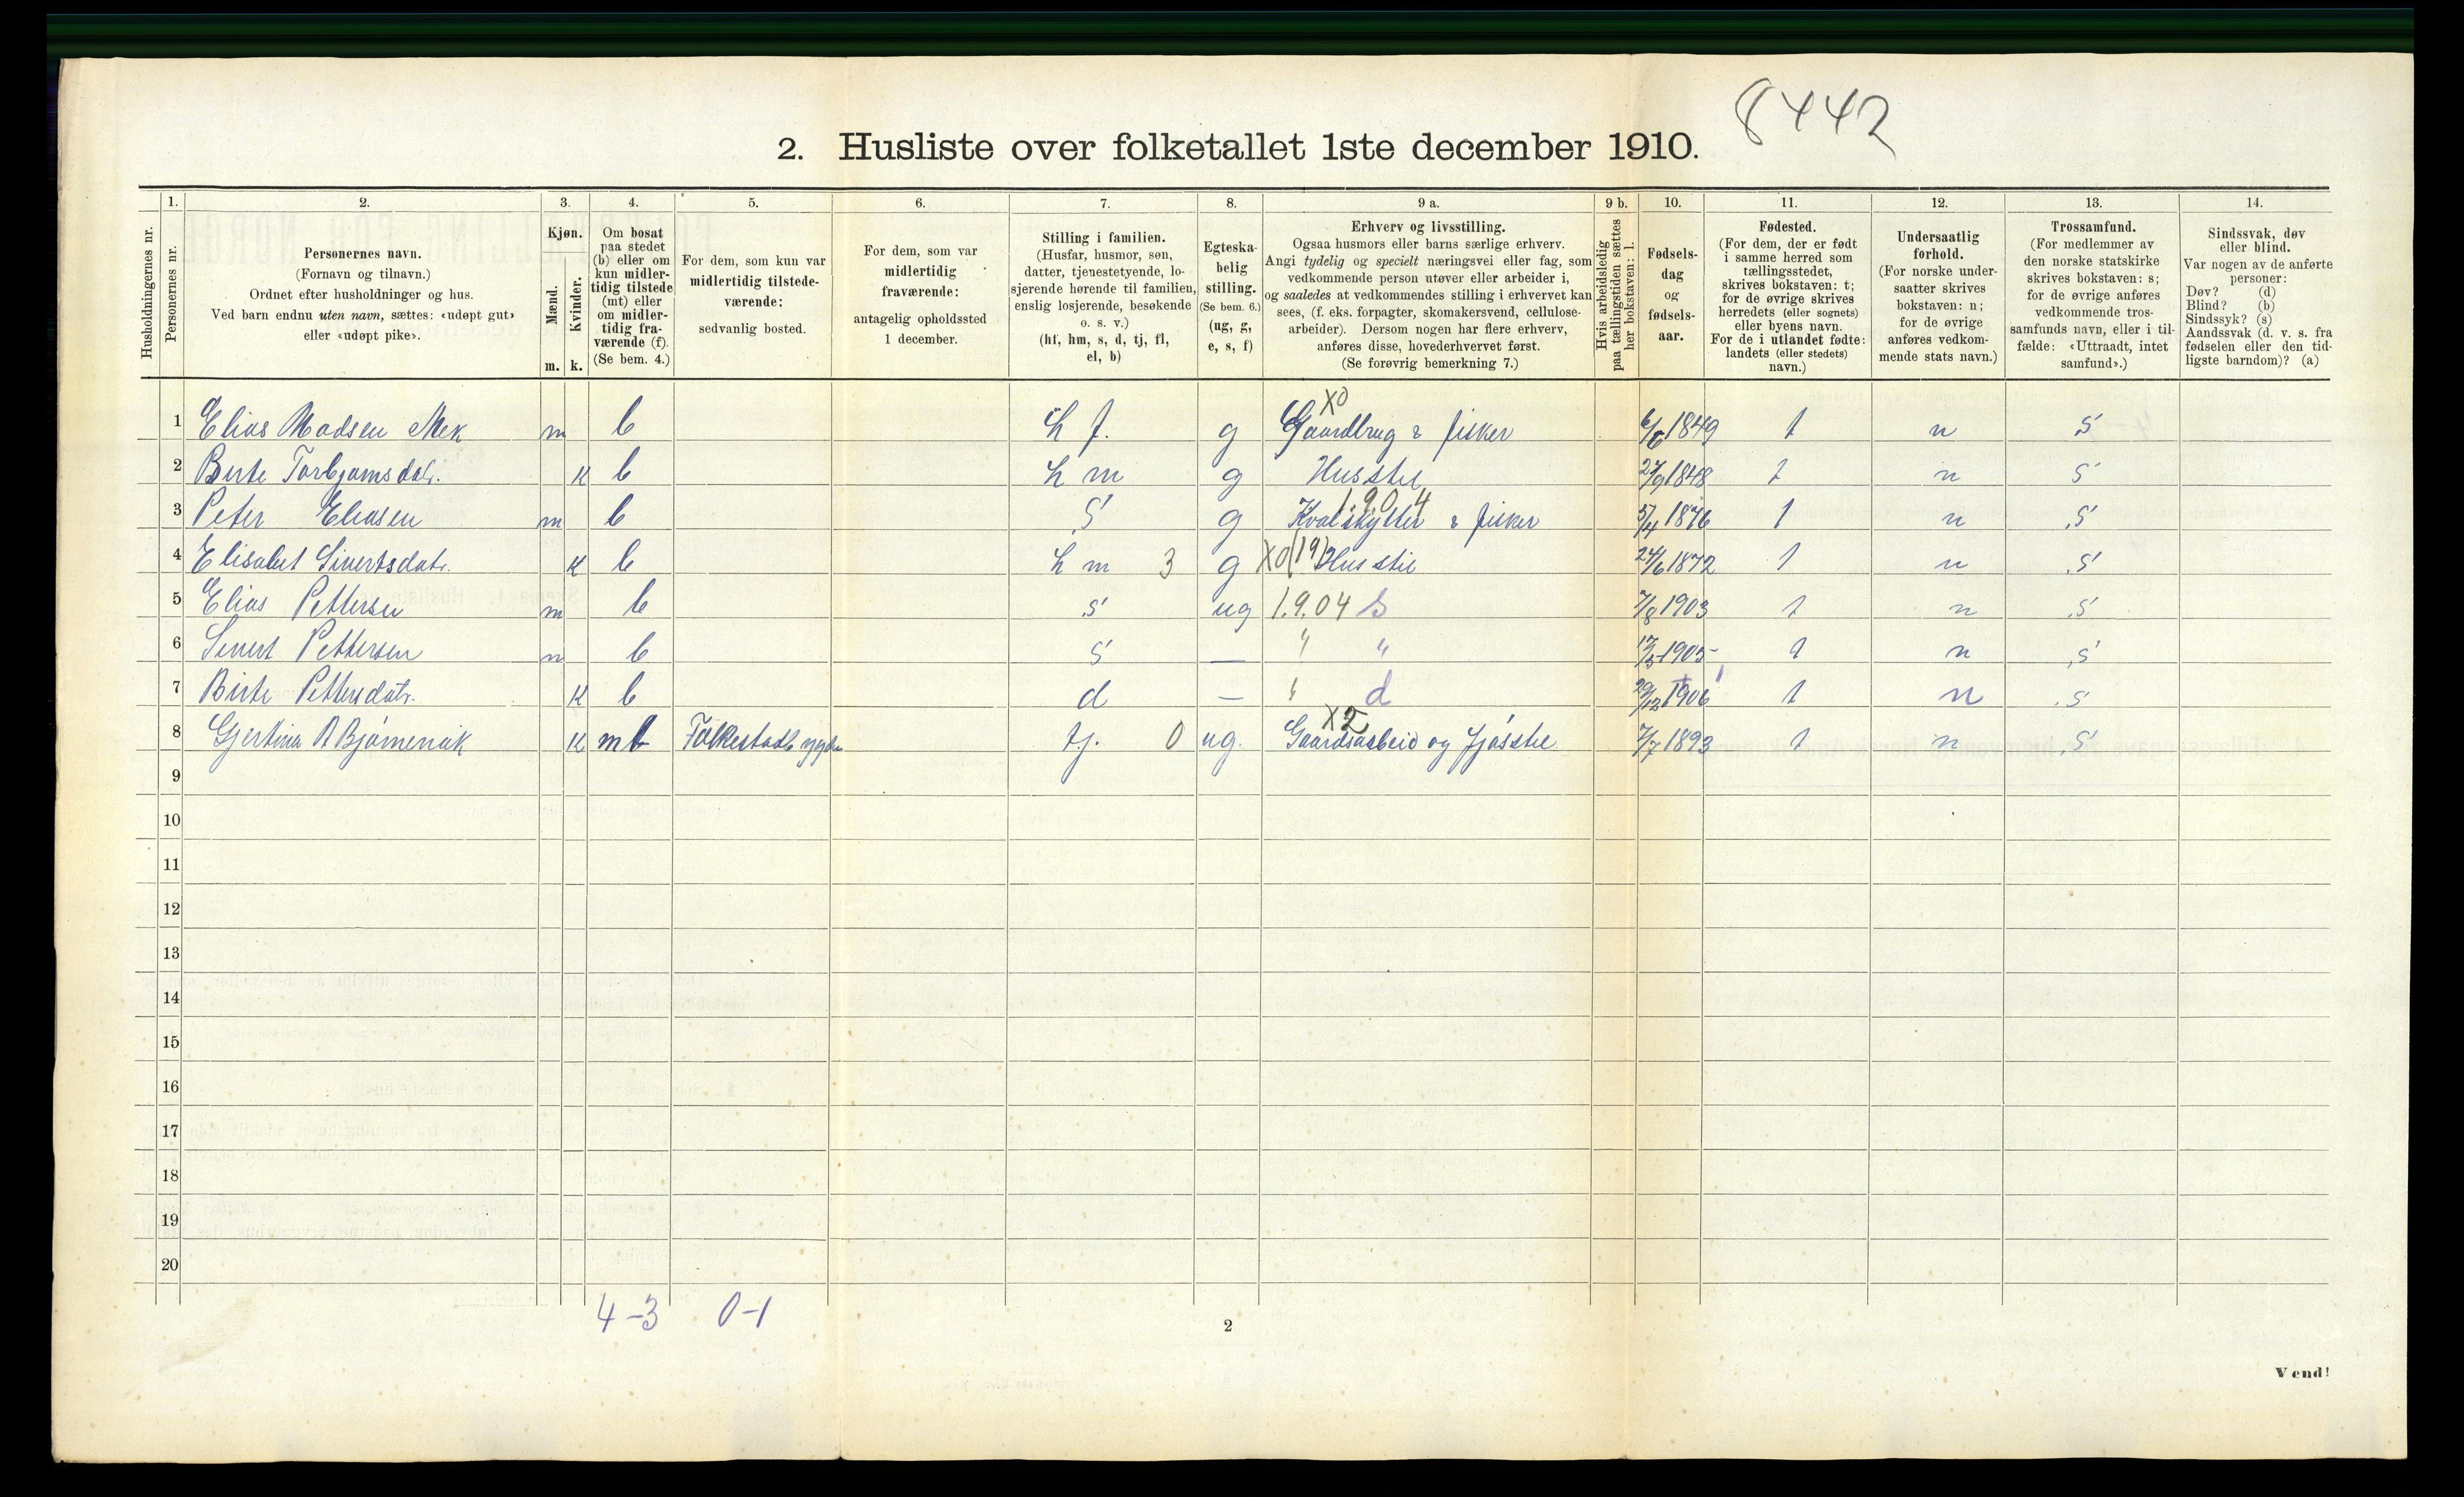 8442
2. Husliste over folketallet 1ste december 1910.
Husholdningernes nr.
1. Personernes nr.
2. Personernes navn.
(Fornavn og tilnavn.)
Ordnet efter husholdninger og hus.
Ved barn endnu uten navn, sættes: «udøpt gut»
eller «udøpt pike».
3. Kjøn.
Mænd. Kvinder.
m. k.
4. Om bosat
paa stedet
(b) eller om
kun midler-
tidig tilstede
(mt) eller
om midler-
tidig fra-
værende (f).
(Se bem. 4.)
5. For dem, som kun var
midlertidig tilstede-
værende:
sedvanlig bosted.
6. For dem, som var
midlertidig
fraværende:
antagelig opholdssted
1 december.
7. Stilling i familien.
(Husfar, husmor, søn,
datter, tjenestetyende, lo-
sjerende hørende til familien,
enslig losjerende, besøkende
o. s. v.)
(hf, hm, s, d, tj, fl,
el, b)
8. Egteska-
belig
stilling.
(Se bem. 6.)
(ug, g,
e, s, f)
9 a. Erhverv og livsstilling.
Ogsaa husmors eller barns særlige erhverv.
Angi tydelig og specielt næringsvei eller fag, som
vedkommende person utøver eller arbeider i,
og saaledes at vedkommendes stilling i erhvervet kan
sees, (f. eks. forpagter, skomakersvend, cellulose-
arbeider). Dersom nogen har flere erhverv,
anføres disse, hovederhvervet først.
(Se forøvrig bemerkning 7.)
9 b. Hvis arbeidsledig
paa tællingstiden sættes
her bokstaven: l.
10. Fødsels-
dag
og
fødsels-
aar.
11. Fødested.
(For dem, der er født
i samme herred som
tællingsstedet,
skrives bokstaven: t;
for de øvrige skrives
herredets (eller sognets)
eller byens navn.
For de i utlandet fødte:
landets (eller stedets)
navn.)
12. Undersaatlig
forhold.
(For norske under-
saatter skrives
bokstaven: n;
for de øvrige
anføres vedkom-
mende stats navn.)
13. Trossamfund.
(For medlemmer av
den norske statskirke
skrives bokstaven: s;
for de øvrige anføres
vedkommende tros-
samfunds navn, eller i til-
fælde: «Uttraadt, intet
samfund».)
14. Sindssvak, døv
eller blind.
Var nogen av de anførte
personer:
Døv? (d)
Blind? (b)
Sindssyk? (s)
Aandssvak (d. v. s. fra
fødselen eller den tid-
ligste barndom)? (a)
X0
1 Elias Madsen Mek m b h f. g Gaardbrug & fisker 1849 t n s
2 Birte Torbjørnsdatr. k b h m g Husstel 27/9 1848 t n s
1.9.04
3 Peter Eliasen m b s g Kvalskytter & fisker 5/4 1876 t n s
4 Elisabet Sivertsdatr. k b h m 3 g X0(19) Husstel 24/6 1872 t n s
5 Elias Pettersen m b s ug 1.9.04 s 7/8 1903 t n s
6 Sivert Pettersen m b s — " " 1905 t n s
7 Birte Pettersdatr. k b d — " d 29/12 1906 t n s
X2
8 Gjertina k mt Folkestadbygden tj. 0 ug. Gaardsarbeid og fjøsstel 7/7 1893 t n s
9
10
11
12
13
14
15
16
17
18
19
20
4-3 0-1
2
Vend!